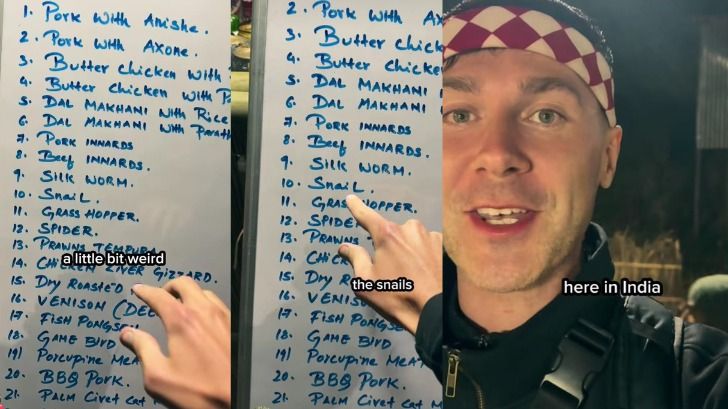 1. Pork with Anishe.
2. Pork with Axone.
3. Butter chicken with
4. Butter chicken with P
5. DAL MAKHANI with Rice
6. DAL MAKHANI with Parath
7. Pork INNARDS
8. Beef INNARDS.
9. SILK WORM.
10. Snail.
11. GRASS HOPPER.
12. SPIDER.
13. PRAWNS TEMPURA
a little bit weird
14. CHICKEN LIVER GIZZARD.
15. Dry Roasted
16. VENISON (DEE
17. FISH PONGSEN
18. GAME BIRD
19) PORCUPINE MEAT
20. BBQ PORK.
21. PALM Civet Cat M
2. Pork with Ax
3. Butter chick
4. Butter Chicke
5. DAL MAKHANI
6. DAL MAKHANI
7. PORK INNARDS
8. Beef INNARDS.
9. SILK WORM.
10. Snail.
11. GRASS HOPPER.
12. SPIDE
13. PRAWNS
14. Chi
15. Dry Ro
the snails
16. VENIS
17. FISH PONGSE
18. GAME BIRD
19) PORCUPINE MEAT
20. BBQ PORK.
21. PALM Civet Cat M
here in India